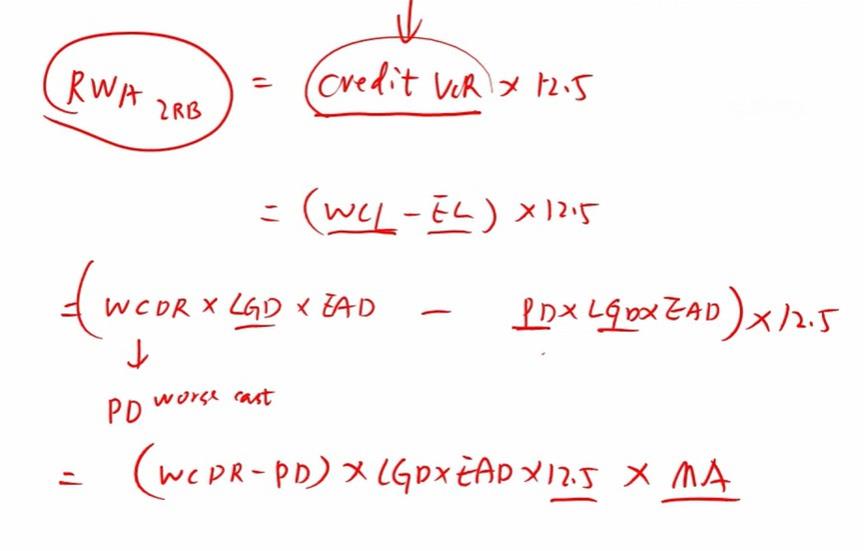 RWA IRB = Credit VaR × 12.5
= (WCL - EL) × 12.5
= (WCDR × LGD × EAD - PD × LGD × EAD) × 12.5
↓
PD worse cast
= (WCDR - PD) × LGD × EAD × 12.5 × MA